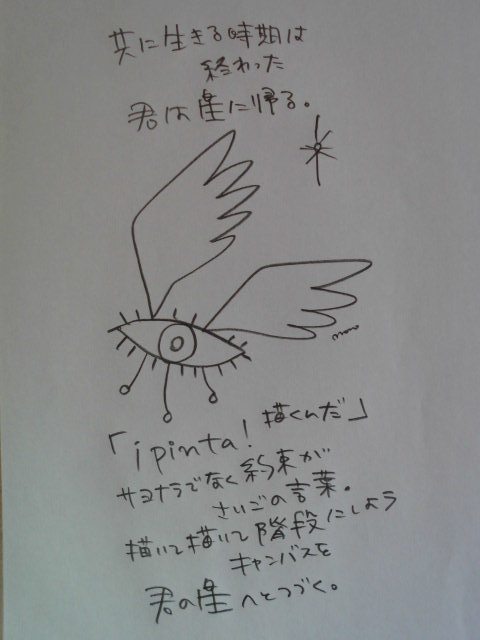 共に生きる時期は
終わった
君は星に帰る。
「¡pinta! 描くんだ」
サヨナラでなく約束が
さいごの言葉。
描いて描いて階段にしよう
キャンバスを
君の星へとつづく。